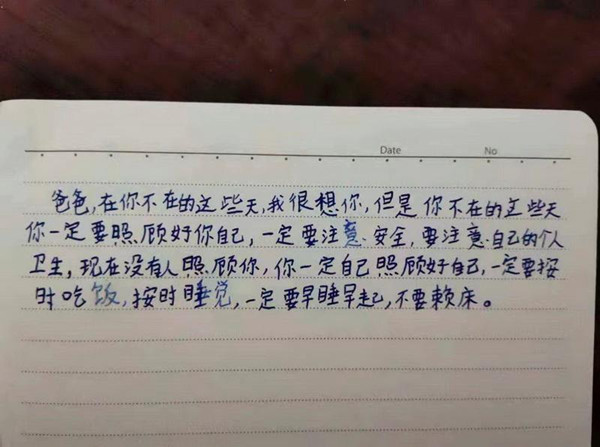 Date No
爸爸,在你不在的这些天,我很想你,但是你不在的这些天
你一定要照顾好你自己,一定要注意安全,要注意自己的个人
卫生,现在没有人照顾你,你一定自己照顾好自己,一定要按
时吃饭,按时睡觉,一定要早睡早起,不要赖床。